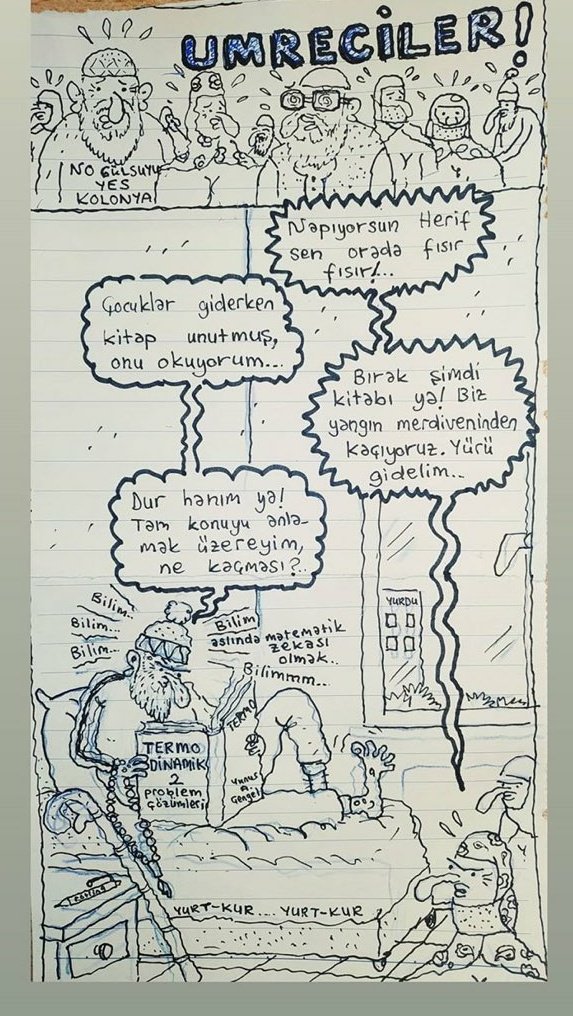 UMRECİLER!
NO GÜLSUYU
YES
KOLONYA
Napıyorsun Herif
sen orada fısır
fısır!..
Çocuklar giderken
kitap unutmuş,
onu okuyorum...
Bırak şimdi
kitabı ya! Biz
yangın merdiveninden
kaçıyoruz. Yürü
gidelim..
Dur hanım ya!
Tam konuyu anla-
mak üzereyim,
ne kaçması?..
YURDU
Bilim..
Bilim...
Bilim..
Bilim
aslında matematik
zekası
olmak..
Bilimmm...
TERMO
DİNAMİK
2
problem
çözümleri
TERMO
Yunus
A.
Çengel
YURT-KUR.... YURT-KUR